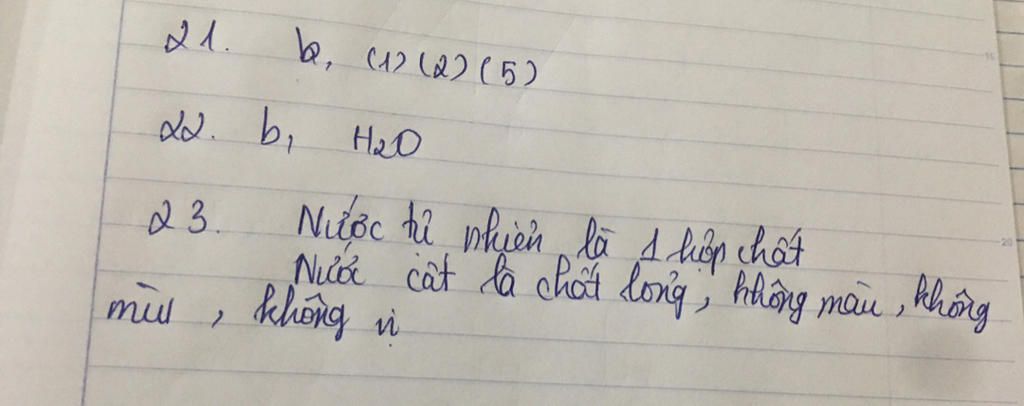 21. b, (1) (2) (5)
22. b, H2O
23. Nước tự nhiên là 1 hợp chất
Nước cất là chất lỏng, không màu, không
mùi, không vị